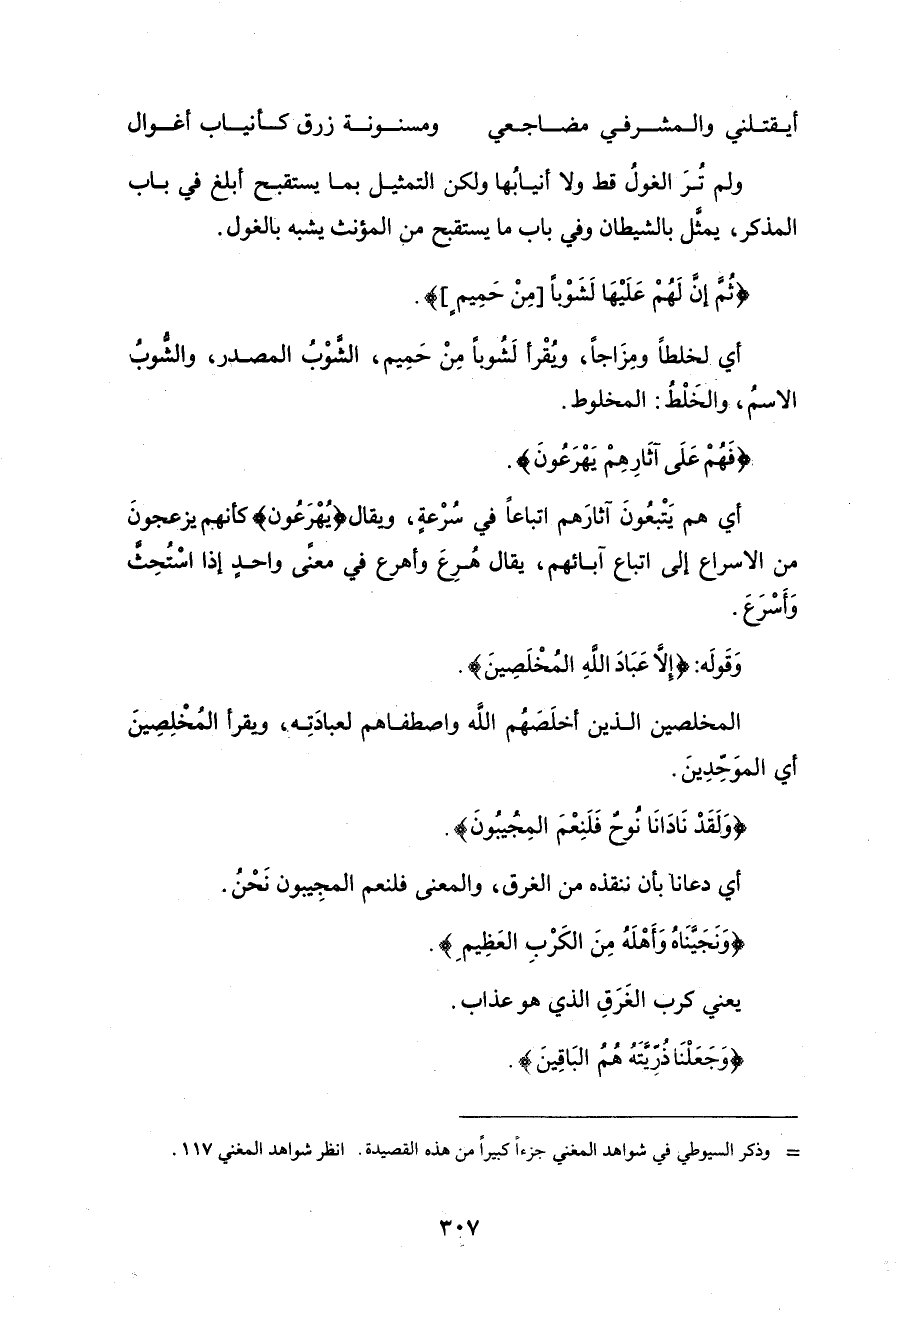 أيـقتـلني والـمشـرفـي مضـاجـعي ومسنـونـة زرق كـأنيـاب أغـوال
ولم تُرَ الغولُ قط ولا أنيـابُها ولكن التمثيـل بمـا يستقبـح أبلغ في بـاب
المذكر، يمثَّل بالشيطان وفي باب ما يستقبح من المؤنث يشبه بالغول.
﴿ثُمَّ إنَّ لَهُمْ عَلَيْهَا لَشَوْباً [مِنْ حَمِيمٍ]﴾.
أي لخلطاً ومِزَاجاً، ويُقْرأ لَشُوباً مِنْ حَمِيم، الشَّوْبُ المصـدر، والشُّوبُ
الاسمُ، والخَلْطُ: المخلوط.
﴿فَهُمْ عَلَى آثَارِهِمْ يَهْرَعُونَ﴾.
أي هم يَتْبعُونَ آثارَهم اتباعاً في سُرْعةٍ، ويقال ﴿يُهْرَعُون﴾ كأنهم يزعجونَ
من الاسراع إلى اتباع آبـائهم، يقال هُـرِعَ وأهرع في معنًى واحـدٍ إذا اسْتُحِثَّ
وَأَسْرَعَ.
وَقولَه: ﴿إلَّا عَبَادَ اللَّهِ المُخْلَصِينَ﴾.
المخلصين الـذين أخلَصَهُم اللَّه واصطفـاهم لعبادَتِـه، ويقرأ المُخْلِصِينَ
أي الموَحِّدِينَ.
﴿وَلَقَدْ نَادَانَا نُوحٌ فَلَنِعْمَ المِجُيبُونَ﴾.
أي دعانا بأن ننقذه من الغرق، والمعنى فلنعم المجِيبون نَحْنُ.
﴿وَنَجَيَّنَاهُ وَأَهْلَهُ مِنَ الكَرْبِ العَظِيمِ﴾.
يعني كرب الغَرَقِ الذي هو عذاب.
﴿وَجَعَلْنَا ذُرِّيَّتَهُ هُمُ البَاقِينَ﴾.
= وذكر السيوطي في شواهد المغني جزءاً كبيراً من هذه القصيدة. انظر شواهد المغني ١١٧.
٣٠٧